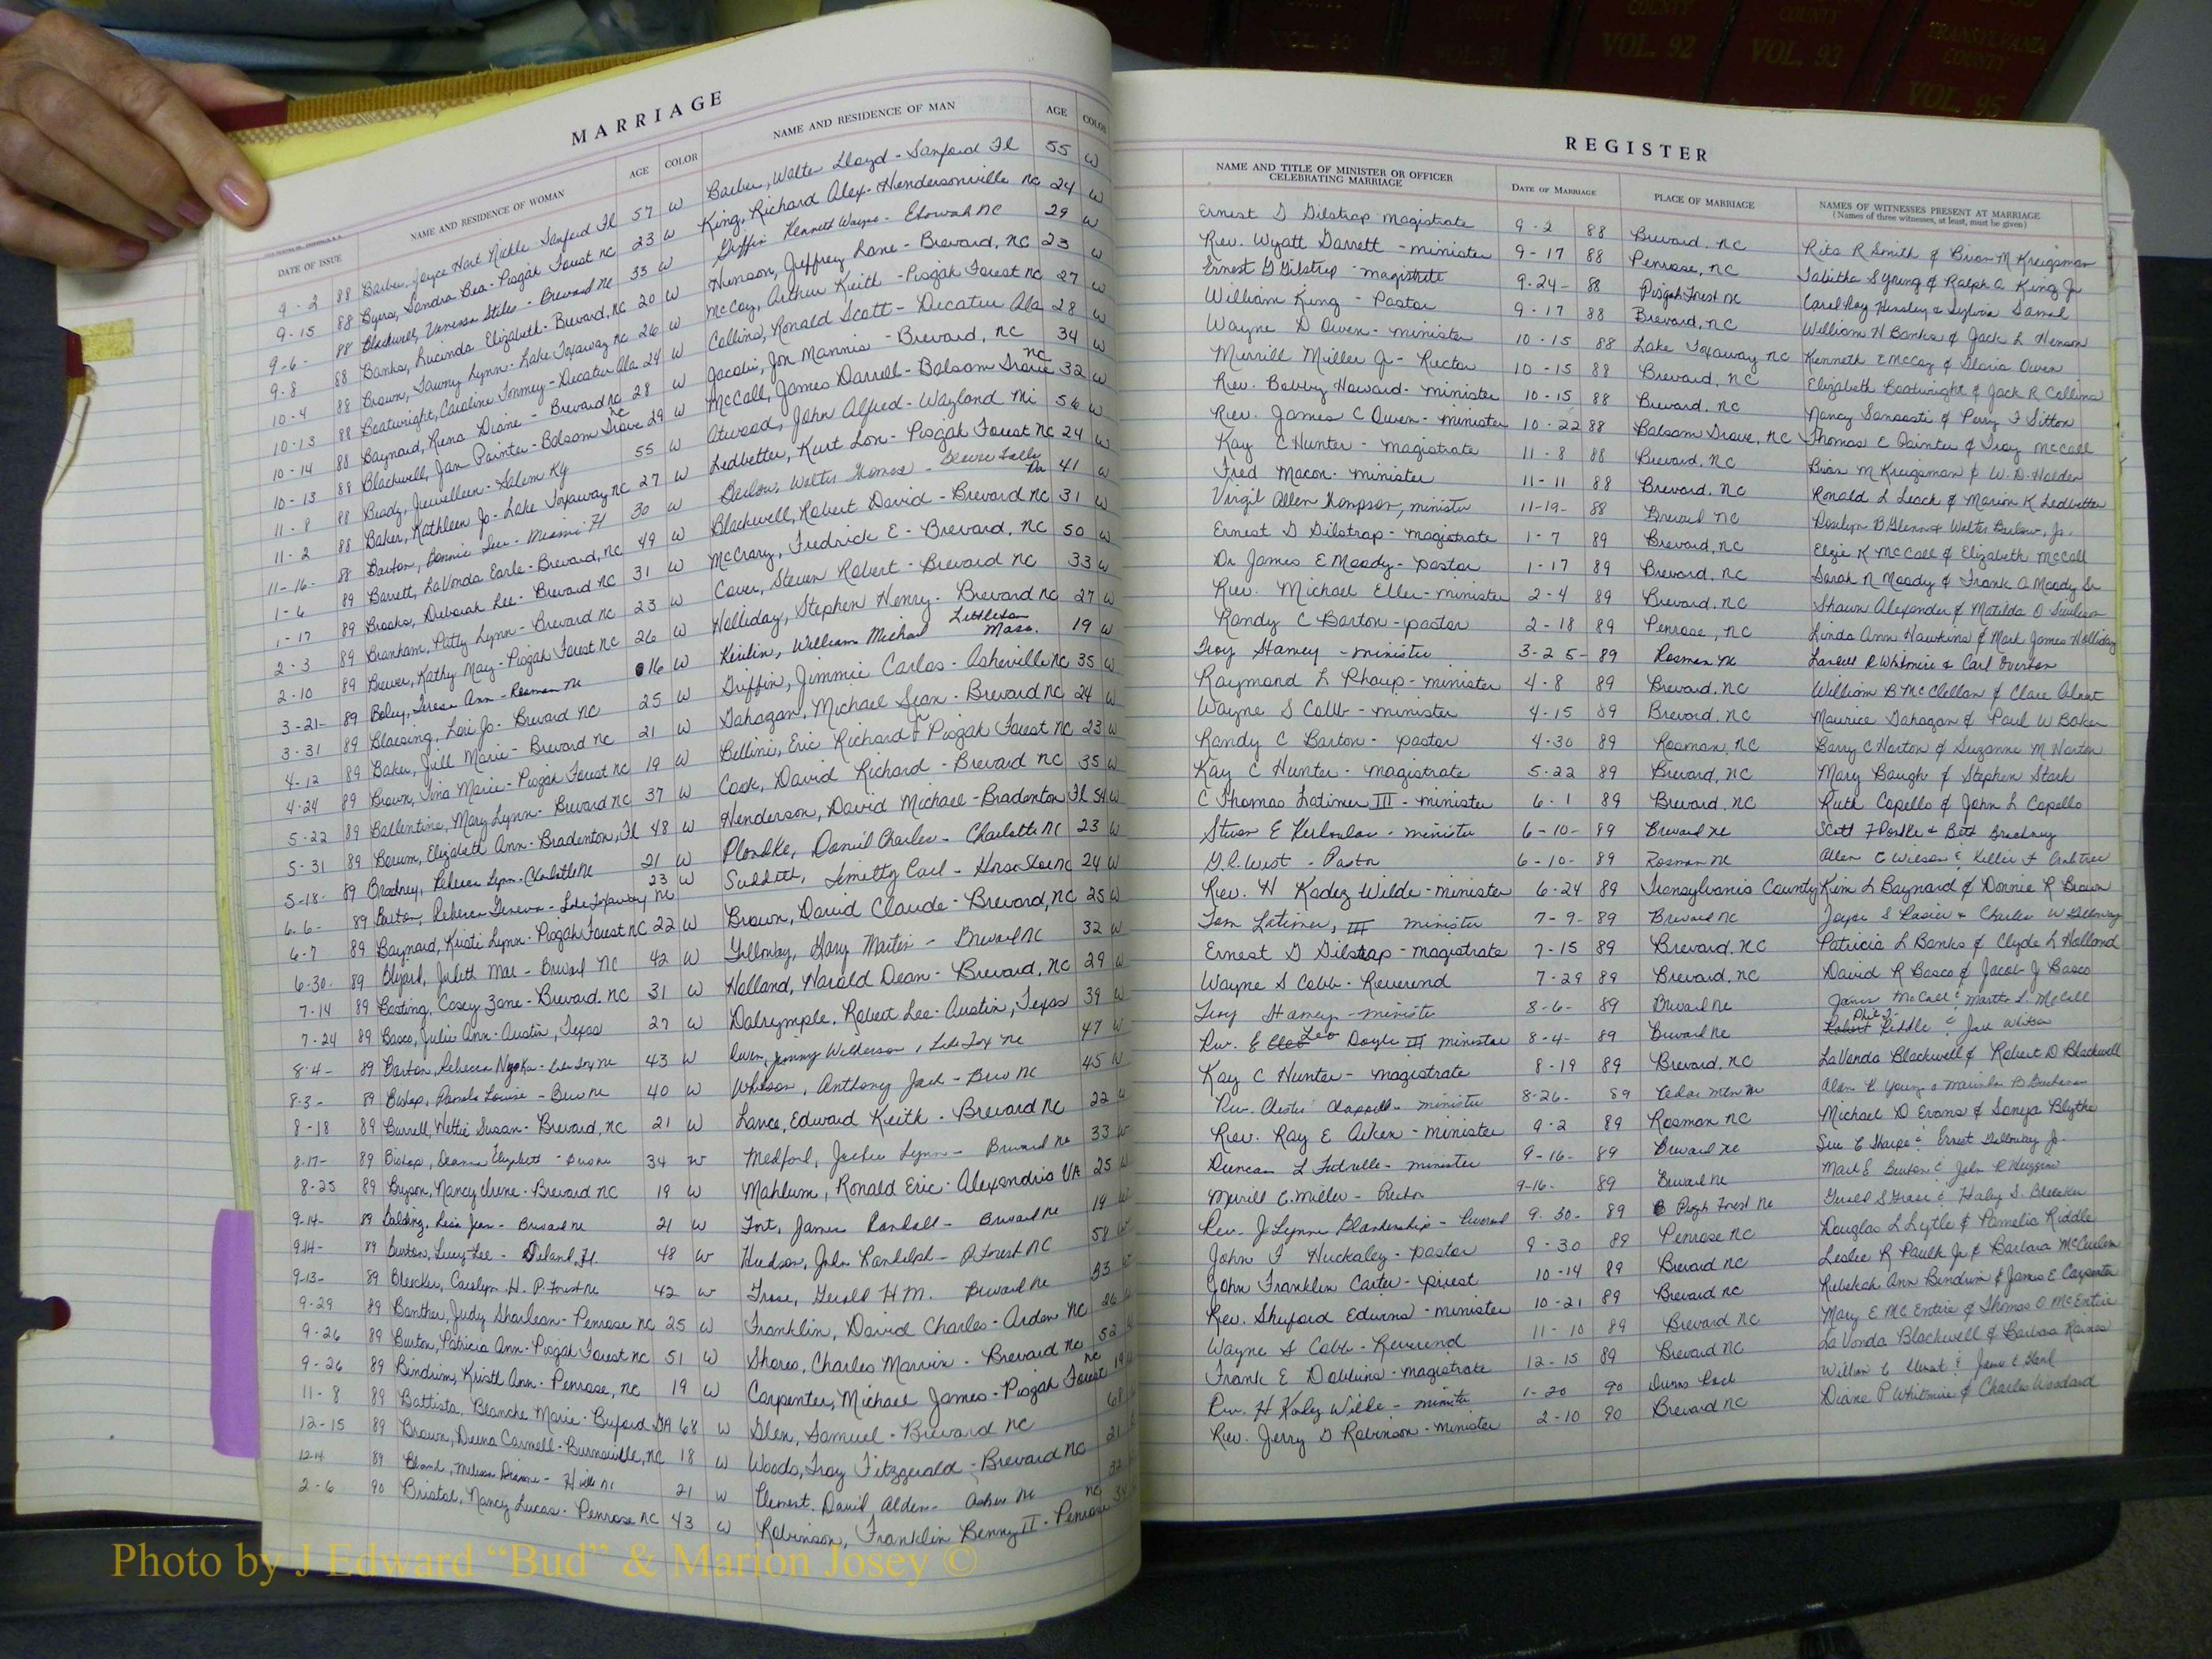 COUNTY COUNTY COUNTY COUNTY TRANSYLVANIA COUNTY
VOL. 90 VOL. 91 VOL. 92 VOL. 93 VOL. 95
MARRIAGE
DATE OF ISSUE NAME AND RESIDENCE OF WOMAN AGE COLOR NAME AND RESIDENCE OF MAN AGE COLOR
9-2 88 Barber, Joyce Hart Nickle Sanford Fl 57 W Barber, Walter Lloyd - Sanford Fl 55 W
9-15 88 Byers, Sandra Bea - Pisgah Forest NC 23 W King, Richard Alex - Hendersonville NC 24 W
9-6- 88 Blackwell, Vanessa Stiles - Brevard NC 33 W Griffin Kennett Wayne - Etowah NC 29 W
9-8 88 Banks, Lucinda Elizabeth - Brevard, NC 20 W Henson, Jeffrey Lane - Brevard, NC 23 W
10-4 88 Brown, Tawny Lynn - Lake Toxaway NC 26 W McCoy, Arthur Keith - Pisgah Forest NC 27 W
10-13 88 Boatwright, Caroline Tommey - Decatur Ala 24 W Collins, Ronald Scott - Decatur Ala 28 W
10-14 88 Baynard, Rena Diane - Brevard NC 28 W Jacobi, Jon Mannis - Brevard, NC 34 W
10-13 88 Blackwell, Jan Painter - Balsam Grove NC 29 W McCall, James Darrell - Balsam Grove NC 32 W
11-8 88 Brady, Juwelleen - Salem Ky 55 W Atwood, John Alfred - Wayland Mi 56 W
11-2 88 Baker, Kathleen Jo - Lake Toxaway NC 27 W Ledbetter, Kurt Lon - Pisgah Forest NC 24 W
11-16- 88 Barton, Bonnie Lee - Miami Fl 30 W Barlow, Walter Thomas - Beaver Falls Pa 41 W
1-6 89 Barrett, LaVonda Earle - Brevard, NC 49 W Blackwell, Robert David - Brevard NC 31 W
1-17 89 Brooks, Deborah Lee - Brevard NC 31 W McCrary, Fredrick E - Brevard, NC 50 W
2-3 89 Branham, Patty Lynn - Brevard NC 23 W Cover, Steven Robert - Brevard NC 33 W
2-10 89 Brewer, Kathy May - Pisgah Forest NC 26 W Holliday, Stephen Henry - Brevard NC 27 W
3-21- 89 Boley, Teresa Ann - Rosman NC 16 W William Michael Littleton Mass. 19 W
3-31 89 Blaesing, Lori Jo - Brevard NC 25 W Griffin, Jimmie Carlos - Asheville NC 35 W
4-12 89 Baker, Jill Marie - Brevard NC 21 W Gahagan, Michael Sean - Brevard NC 24 W
4-24 89 Brown, Tina Marie - Pisgah Forest NC 19 W Bellini, Eric Richard - Pisgah Forest NC 23 W
5-22 89 Ballentine, Mary Lynn - Brevard NC 37 W Cook, David Richard - Brevard NC 35 W
5-31 89 Borum, Elizabeth Ann - Bradenton, Fl 48 W Henderson, David Michael - Bradenton Fl 54 W
5-18- 89 Bradney, Rebecca Lynn - Charlotte NC 21 W Daniel Charles - Charlotte NC 23 W
6-6- 89 Barton, Rebecca Geneva - Lake Toxaway NC 23 W Timothy Carl - Horse Shoe NC 24 W
6-7 89 Baynard, Kristi Lynn - Pisgah Forest NC 22 W Brown, David Claude - Brevard, NC 25 W
6-30- 89 Julieth Mae - Brevard NC 42 W Galloway, Gary Martin - Brevard NC 32 W
7-14 89 Basting, Casey Zane - Brevard. NC 31 W Holland, Harold Dean - Brevard, NC 29 W
7-24 89 Basco, Julie Ann - Austin, Texas 27 W Dalrymple, Robert Lee - Austin, Texas 39 W
8-4- 89 Barton, Rebecca - Lake Tox NC 43 W Owen, Jimmy Wilkerson, Lake Tox NC 47 W
8-3- 89 Bishop, Pamela Louise - Brev NC 40 W Whitson, Anthony Jack - Brev NC 45 W
8-18 89 Burrell, Hettie Susan - Brevard, NC 21 W Lance, Edward Keith - Brevard NC 22 W
8-17- 89 Bishop, Deanna Elizabeth - Brev NC 34 W Medford, Jackie Lynn - Brevard NC 33 W
8-25 89 Bryson, Nancy Irene - Brevard NC 19 W Mahlum, Ronald Eric - Alexandria VA 25 W
9-14- 89 Balding, Lisa Jean - Brevard NC 21 W Fort, James Randall - Brevard NC 19 W
9-14- 89 Burton, Lucy Lee - Deland, Fl. 48 W Hudson, John Randolph - P. Forest NC 58 W
9-13- 89 Bleecker, Carolyn H. P. Forest NC 42 W Gerald H M. Brevard NC 53 W
9-29 89 Banther, Judy Sharlean - Penrose NC 25 W Franklin, David Charles - Arden NC 26 W
9-26 89 Burton, Patricia Ann - Pisgah Forest NC 51 W Shores, Charles Marvin - Brevard NC 52 W
9-26 89 Bindrim, Kristl Ann - Penrose, NC 19 W Carpenter, Michael James - Pisgah Forest NC 19 W
11-8 89 Battista, Blanche Marie - Buford GA 68 W Glen, Samuel - Brevard NC 68
12-15 89 Brown, Deena Carmell - Burnsville, NC 18 W Woods, Troy Fitzgerald - Brevard NC 21
12-14 89 Melissa Dianne - 21 W Clement, David Alden - Ashev NC 32
2-6 90 Bristol, Nancy Lucas - Penrose NC 43 W Robinson, Franklin Benny II - Penrose NC 34
REGISTER
NAME AND TITLE OF MINISTER OR OFFICER CELEBRATING MARRIAGE DATE OF MARRIAGE PLACE OF MARRIAGE NAMES OF WITNESSES PRESENT AT MARRIAGE
(Names of three witnesses, at least, must be given)
Ernest G Gilstrap magistrate 9-2 88 Brevard, NC Rita R Smith & Brian M Kreigsman
Rev. Wyatt Garrett - minister 9-17 88 Penrose, NC Tabitha S Young & Ralph A King Jr
Ernest G Gilstrap - magistrate 9-24- 88 Pisgah Forest NC Carol Ray Hensley & Sylvia
William King - Pastor 9-17 88 Brevard, NC William H Banks & Jack L Henson
Wayne D Owen - minister 10-15 88 Lake Toxaway NC Kenneth E McCoy & Gloria Owen
Merrill Miller Jr - Rector 10-15 88 Brevard, NC Elizabeth Boatwright & Jack R Collins
Rev. Bobby Howard - minister 10-15 88 Brevard, NC Nancy Sansosti & Perry F Sitton
Rev. James C Owen - minister 10-22 88 Balsam Grove, NC Thomas C Painter & Troy McCall
Kay C Hunter - magistrate 11-8 88 Brevard, NC Brian M Kreigsman & W. D. Holden
Fred Macon - minister 11-11 88 Brevard, NC Ronald L Leach & Marion K Ledbetter
Virgil Allen Thompson, minister 11-19- 88 Brevard NC Roselyn B Glenn & Walter Barlow, Jr.
Ernest G Gilstrap - magistrate 1-7 89 Brevard, NC Elzie K McCall & Elizabeth McCall
Dr James E Moody - pastor 1-17 89 Brevard, NC Sarah N Moody & Frank A Moody Sr
Rev. Michael Eller - minister 2-4 89 Brevard, NC Shawn Alexander & Matilda O
Randy C Barton - pastor 2-18 89 Penrose, NC Linda Ann Hawkins & Mark James Holliday
Troy Hamey - minister 3-25- 89 Rosman NC R Whitmire & Carl Overton
Raymond L Phaup - minister 4-8 89 Brevard, NC William B McClellan & Clare
Wayne S Cobb - minister 4-15 89 Brevard, NC Maurice Gahagan & Paul W Baker
Randy C Barton - pastor 4-30 89 Rosman, NC Barry C Horton & Suzanne M Horton
Kay C Hunter - magistrate 5-22 89 Brevard, NC Mary Baugh & Stephen Stark
C Thomas Latimer III - minister 6-1 89 Brevard, NC Ruth Capello & John L Capello
Steven E - minister 6-10- 89 Brevard NC Scott & Beth Bradney
G.C. West - Pastor 6-10- 89 Rosman NC Allen C Wilson & Kellie F Crabtree
Rev. H Kadez Wilde - minister 6-24 89 Transylvania County Kim L Baynard & Donnie R Brown
Tom Latimer, III minister 7-9- 89 Brevard NC Joyce S & Charles W Galloway
Ernest G Gilstrap - magistrate 7-15 89 Brevard, NC Patricia L Banks & Clyde L Holland
Wayne S Cobb - Reverend 7-29 89 Brevard, NC David R Basco & Jacob J Basco
Troy Hamey - minister 8-6- 89 Brevard NC James McCall & Martha L. McCall
Rev. E Leo Doyle III minister 8-4- 89 Brevard NC Riddle & Jack Whitson
Kay C Hunter - magistrate 8-19 89 Brevard, NC LaVonda Blackwell & Robert D Blackwell
Rev. Chester Chappell - minister 8-26- 89 Cedar Mtn NC Alan R Young & B Buchanan
Rev. Ray E Aiken - minister 9-2 89 Rosman NC Michael D Evans & Sonya Blythe
Duncan L - minister 9-16- 89 Brevard NC Sue C Sharpe & Ernest Galloway Jr.
Merrill C. Miller - Rector 9-16- 89 Brevard NC Mark E Burton & John R Huggins
Rev. J Lynne Blankenship - Reverend 9-30- 89 Pisgah Forest NC & Haley S. Bleecker
John F Huckaby - pastor 9-30 89 Penrose NC Douglas L Lytle & Pamelia Riddle
John Franklin Carter - priest 10-14 89 Brevard NC Leslie R Paulk Jr & Barbara
Rev. Sheford Edwins - minister 10-21 89 Brevard NC Rebekah Ann Bindrim & James E Carpenter
Wayne S Cobb - Reverend 11-10 89 Brevard NC Mary E McEntire & Thomas O McEntire
Frank E Dobbins - magistrate 12-15 89 Brevard NC LaVonda Blackwell & Barbara Raines
Rev. H Wilde - minister 1-20 90 William C & James E
Rev. Jerry G Robinson - minister 2-10 90 Brevard NC Diane P Whitmire & Charles Woodard
Photo by J Edward “Bud” & Marion Josey ©